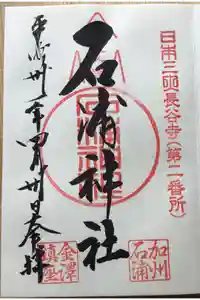 日本三所長谷寺（第二番所）
石浦神社
平成卅一年四月卅日奉拝
加州
石浦
金澤
鎮座